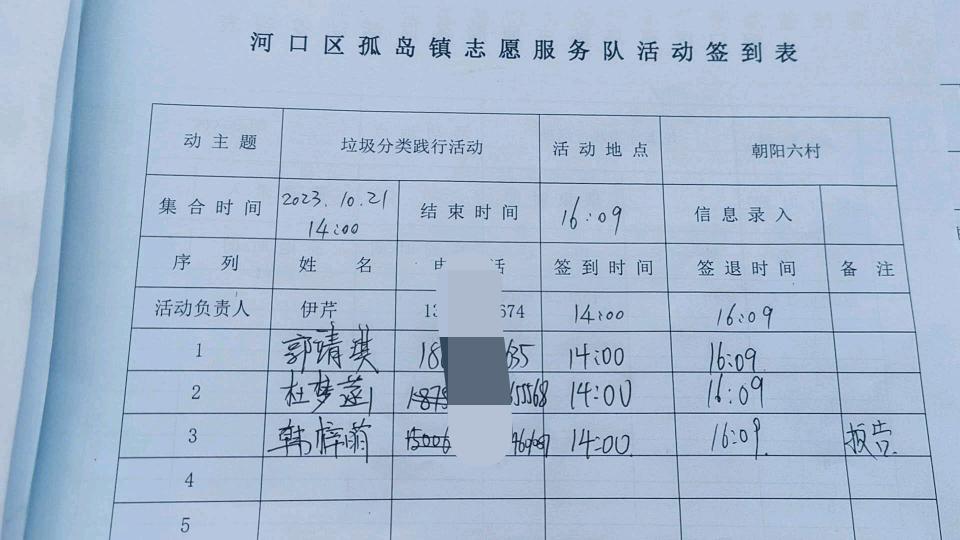 河口区孤岛镇志愿服务队活动签到表
动主题 垃圾分类践行活动 活动地点 朝阳六村
集合时间 2023.10.21 14:00 结束时间 16:09 信息录入
序列 姓名 电 话 签到时间 签退时间 备注
活动负责人 伊芹 13 674 14:00 16:09
1 郭靖琪 18 635 14:00 16:09
2 杜梦 1878 65568 14:00 16:09
3 韩梓萌 15006 14:00 16:09 报告
4
5